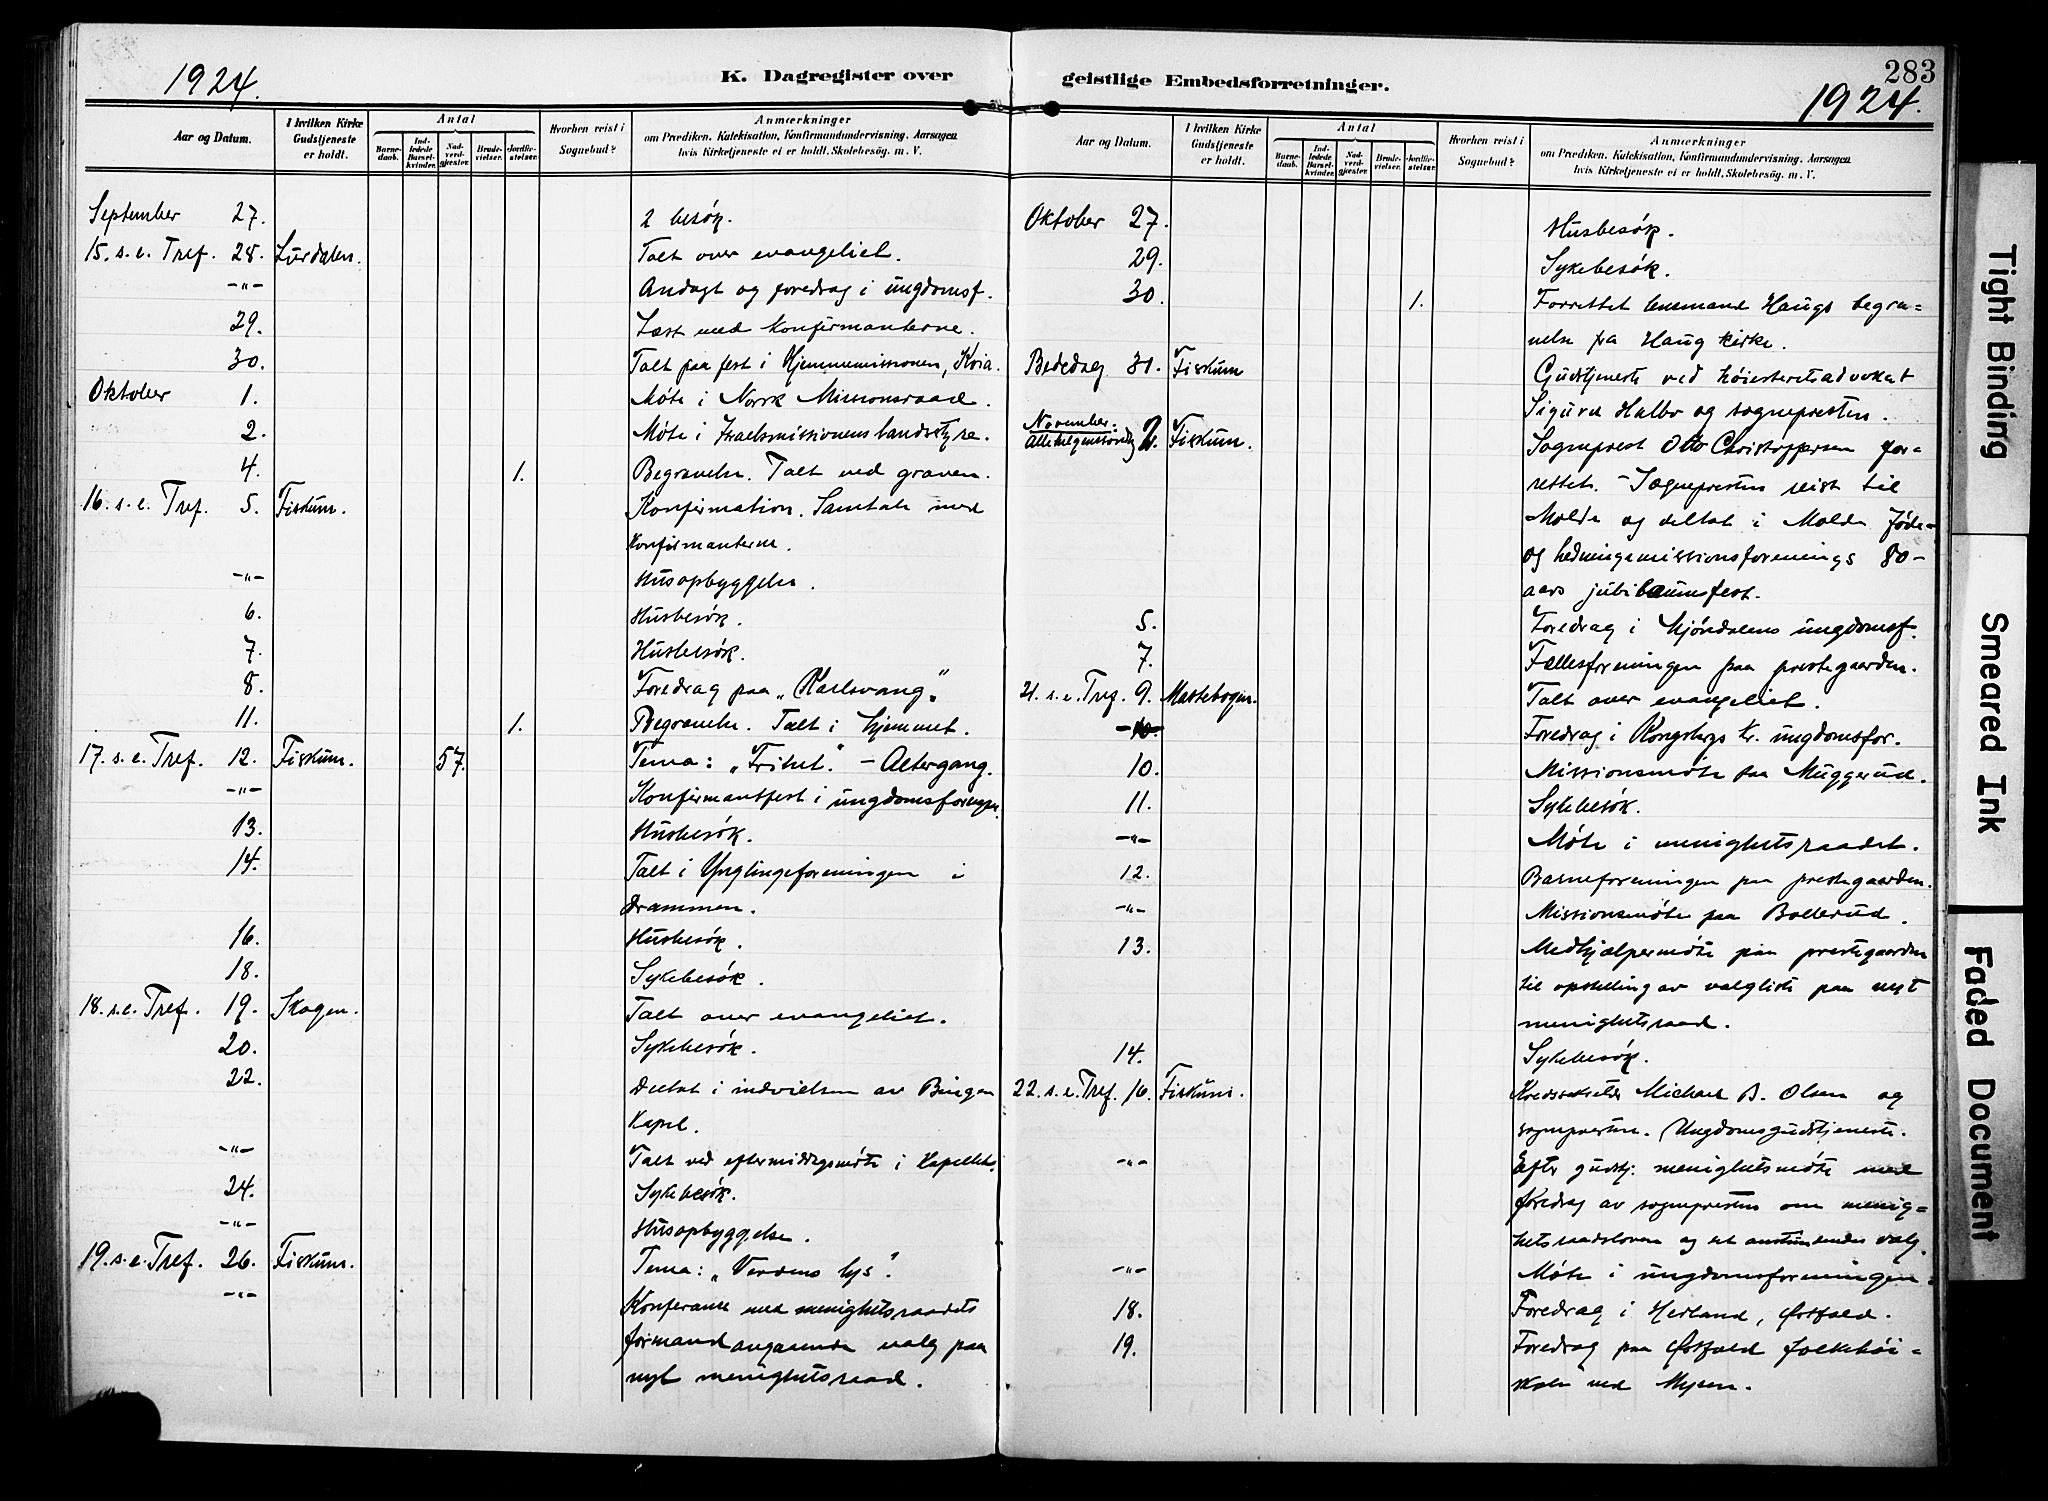 1924.
K. Dagregister over
Aar og Datum.
I hvilken Kirke Gudstjeneste er holdt.
Antal
Barne-daab.
Ind-ledede Barsel-kvinder.
Nad-verd-gjester.
Brude-vielser.
Jordfæ-stelser.
Hvorhen reist i Sognebud?
Anmærkninger
om Prædiken, Katekisation, Konfirmandundervisning, Aarsagen
hvis Kirketjeneste ei er holdt, Skolebesøg, m. V.
September 27. 2 besök.
15. s. e. Tref. 28. Lurdalen. Talt over evangeliet.
-"- Andagt og foredrag i ungdomsf.
29. Læst med konfirmanterne.
30. Talt paa fest i Hjemmemissionen, Kvia.
Oktober 1. Møte i Norsk Missionsraad.
2. Møte i Israelsmissionens landsstyre.
4. 1. Begravelse. Talt ved graven.
16. s. e. Tref. 5. Fiskum. Konfirmation. Samtale med
konfirmanterne.
-"- Husopbyggelse.
6. Husbesøk.
7. Husbesøk.
8. Foredrag paa „Karlsvang".
11. 1. Begravelse. Talt i hjemmet.
17. s. e. Tref. 12. Fiskum. 57. Tema: „Frihet." - Altergang.
-"- Konfirmantfest i ungdomsforeningen.
13. Husbesøk.
14. Talt i Ynglingeforeningen i
Drammen.
16. Husbesøk.
18. Sykebesøk.
18. s. e. Tref. 19. Skogen. Talt over evangeliet.
20. Sykebesøk.
22. Deltat i indvielsen av Bingen
kapel.
-"- Talt ved eftermiddagsmøte i kapellet.
24. Sykebesøk.
-"- Husopbyggelse.
19. s. e. Tref. 26. Fiskum. Tema: „Verdens lys".
-"- Konferanse med menighetsraadets
formand angaaende valg paa
nyt menighetsraad.
283
1924.
geistlige Embedsforretninger.
Aar og Datum.
I hvilken Kirke Gudstjeneste er holdt.
Antal
Barne-daab.
Ind-ledede Barsel-kvinder.
Nad-verd-gjester.
Brude-vielser.
Jordfæ-stelser.
Hvorhen reist i Sognebud?
Anmærkninger
om Prædiken, Katekisation, Konfirmandundervisning, Aarsagen
hvis Kirketjeneste ei er holdt, Skolebesøg, m. V.
Oktober 27. Husbesøk.
29. Sykebesøk.
30. 1. Forrettet lensmand Haugs begra-
velse fra Haug kirke.
Bededag 31. Fiskum Gudstjeneste ved høiesteretsadvokat
Sigurd Halbo og sognepresten.
November.
Allehelgenssøndag 2. Fiskum. Sogneprest Otto Christophersen for-
rettet. - Sognepresten reist til
Molde og deltat i Molde Jøde-
og hedningemissionsforenings 80-
aars jubilæumsfest.
5. Foredrag i Mjøndalens ungdomsf.
7. Fællesforeningen paa prestegaarden.
21. s. e. Tref. 9. Mastebogen. Talt over evangeliet.
-10- Foredrag i Kongsbergs kr. ungdomsfor.
10. Missionsmøte paa Muggerud.
11. Sykebesøk.
-"- Møte i menighetsraadet.
12. Barneforeningen paa prestegaarden.
-"- Missionsmøte paa Bollerud.
13. Medhjælpermøte paa prestegaarden
til opstilling av valgliste paa nyt
menighetsraad.
14. Sykebesøk.
22. s. e. Tref. 16. Fiskum. Kredssekretær Michael B. Olsen og
sognepresten. Ungdomsgudstjeneste.
-"- Efter gudstj: menighetsmøte med
foredrag av sognepresten om menig-
hetsraadsloven og det anstundende valg.
-"- Møte i ungdomsforeningen.
18. Foredrag i Herland, Østfold.
19. Foredrag paa Østfold folkehøi-
skole ved Mysen.
Tight Binding
Smeared Ink
Faded Document